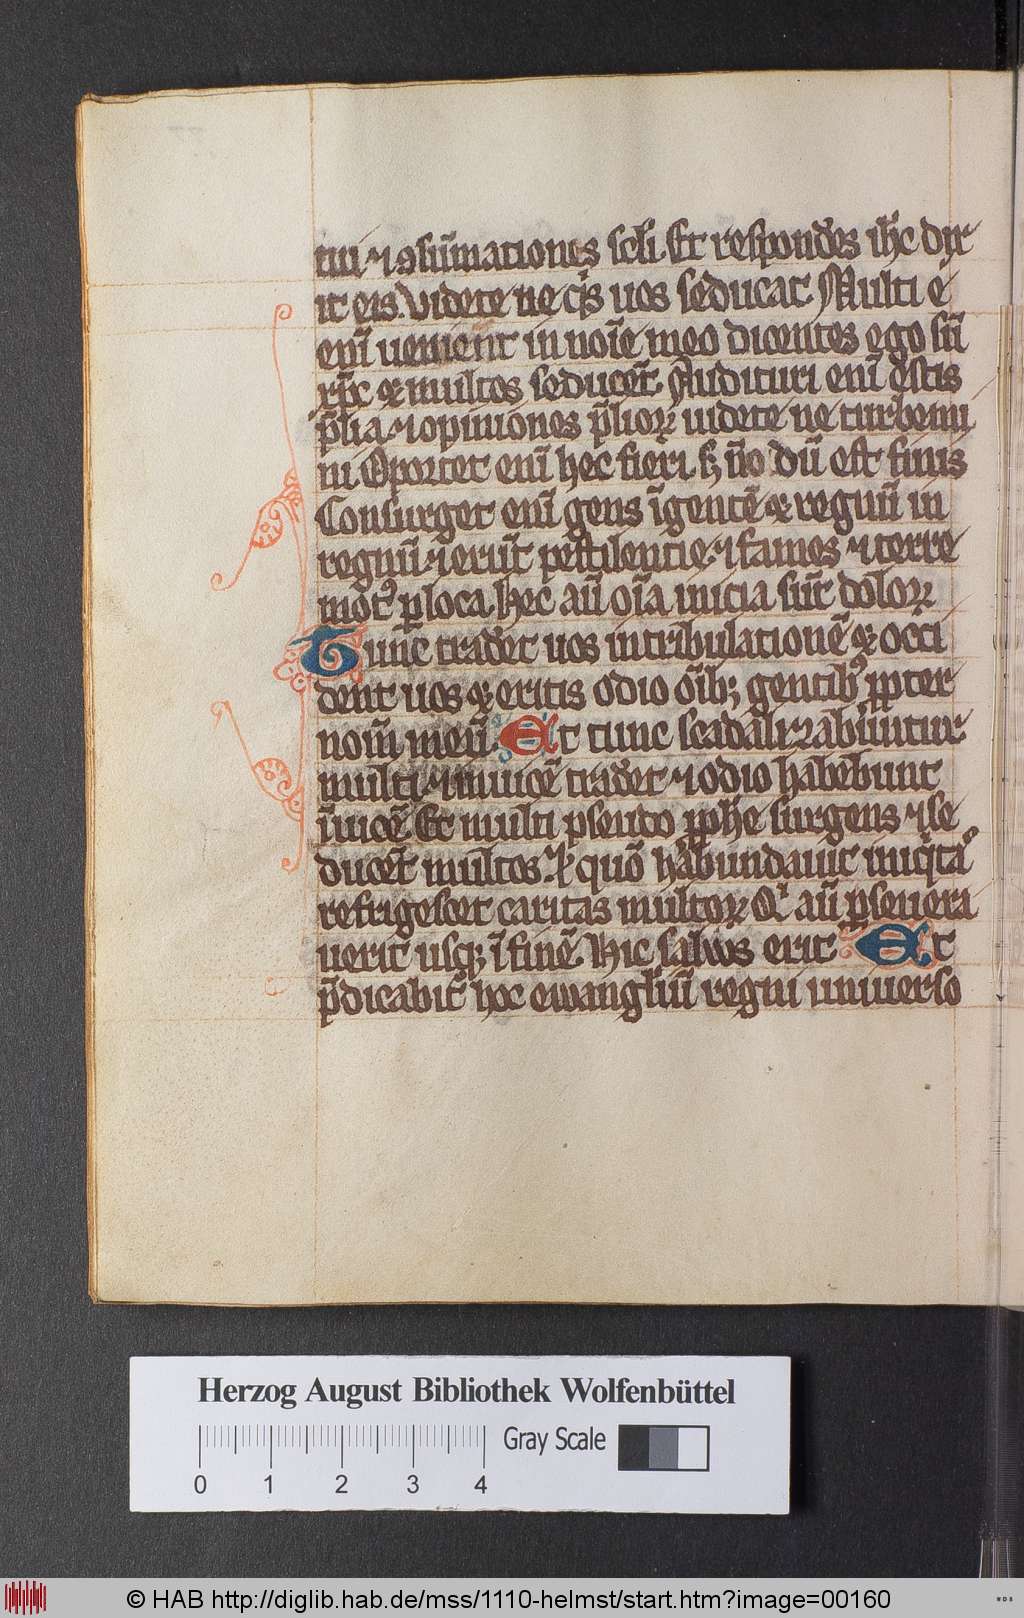 tui ⁊ ꝯsūmationes scl̄i. Et respondēs ih̄c dix
it eis. Videte ne q̄s uos seducat. Multi e
enī uenient in noīe meo dicentes ego sū
xp̄c ⁊ multos seducēt. Audituri enī estis
p̄lia ⁊ opiniones p̄lioꝝ uidete ne turbemi
ni Oportet enī hec fieri sꝫ nō dū est finis
Consurget enī gens ī gentē ⁊ regnū in
regnū ⁊ erūt pestilencie ⁊ fames ⁊ terre
mot⁹ ꝑ loca. Hec aū oīa inicia sūt doloꝝ
Tunc tradēt uos in tribulationē ⁊ occi
dent uos ⁊ eritis odio oībꝫ gentibꝰ ꝓpter
nom̄ meū. Et tunc scādaliꝫabūntur
multi ⁊ inuicē tradēt ⁊ odio habebunt
īuicē Et multi pseudo ꝓph̄e surgens ⁊ se
ducēt multos. Et quō habundauit iniq̄ta
refrigescet caritas multoꝝ Qⁱ aū ꝑseuera
uerit usqꝫ ī finē. Hic saluus erit Et
p̄dicabit᷑ hoc ewangliū regni uniuerso
Herzog August Bibliothek Wolfenbüttel
0 1 2 3 4 Gray Scale
© HAB http://diglib.hab.de/mss/1110-helmst/start.htm?image=00160